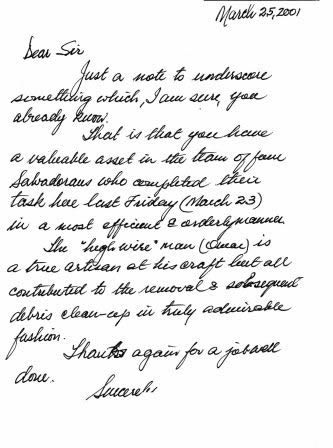 March 25, 2001
Dear Sir
Just a note to underscore
something which, I am sure, you
already know.
That is that you have
a valuable asset in the team of four
Salvadorans who completed their
task here last Friday (March 23)
in a most efficient & orderly manner
The "high wire" man (Omar) is
a true artisan at his craft but all
contributed to the removal & subsequent
debris clean-up in truly admirable
fashion.
Thanks again for a job well
done.
Sincerely